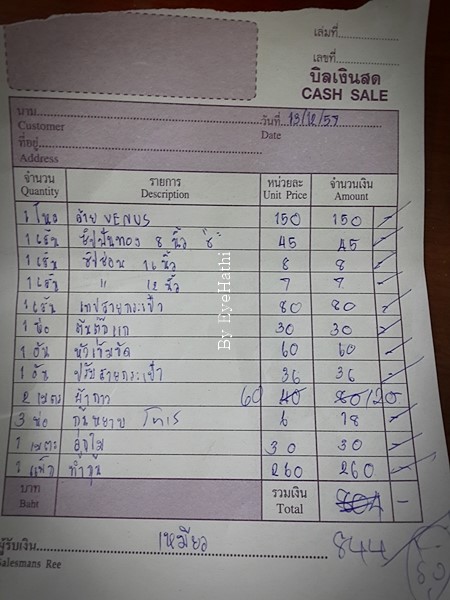 เล่มที่
เลขที่
บิลเงินสด
CASH SALE
นาม
Customer
วันที่ 13/12/57
Date
ที่อยู่
Address
จำนวน รายการ หน่วยละ จำนวนเงิน
Quantity Description Unit Price Amount
1 VENUS 150 150 -
1 เส้น ซิปฟันทอง 8 นิ้ว 45 45 -
1 เส้น ซิปซ่อน 16 นิ้ว 8 8 -
1 เส้น " 12 นิ้ว 7 7 -
1 เส้น เทปสายกระเป๋า 80 80 -
1 30 30 -
1 อัน หัวเข็มขัด 60 60 -
1 อัน ปรับสายกระเป๋า 36 36 -
2 เมตร ผ้ากาว 60 40 80 120
3 ห่อ โทเร 6 18 -
1 เมตร 30 30 -
1 แพ็ค 260 260 -
บาท
Baht
รวมเงิน
Total
804 -
844
ผู้รับเงิน เหมียว
Salesmans Ree
By EyeHathi